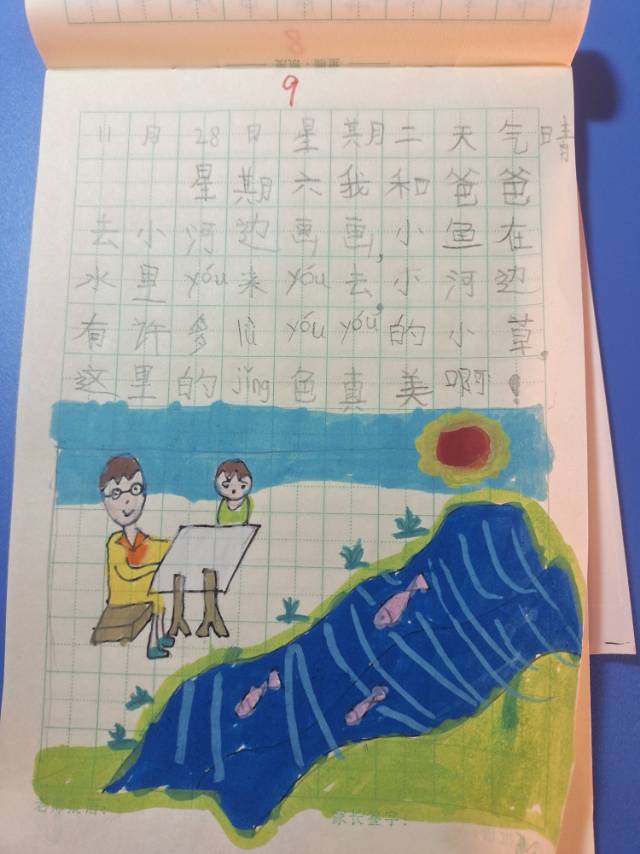 9
11月28日星期二天气晴
星期六我和爸爸
去小河边画画，小鱼在
水里yóu来yóu去，小河边
有许多lǜ yóu yóu的小草。
这里的jǐng色真美啊！
家长签字：